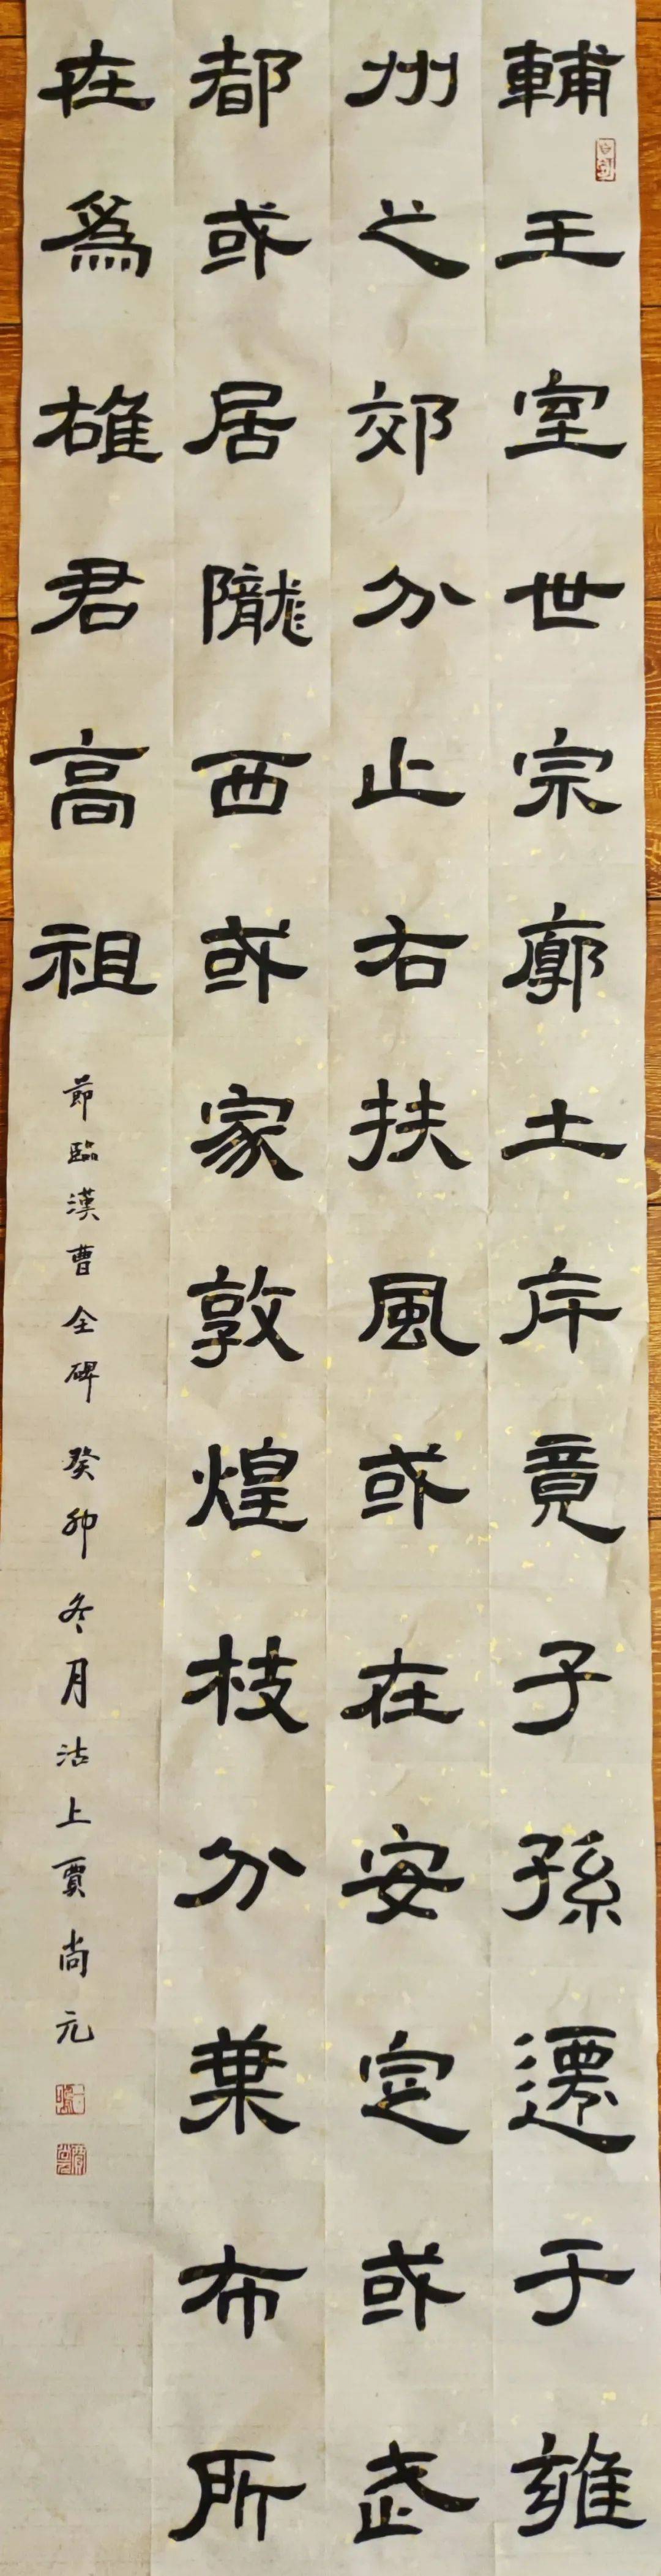 輔王室世宗廓土斥竟子孫遷于雍
州之郊分止右扶風或在安定或武
都或居隴西或家敦煌枝分葉布所
在為雄君高祖
節臨漢曹全碑癸卯冬月沽上賈尚元